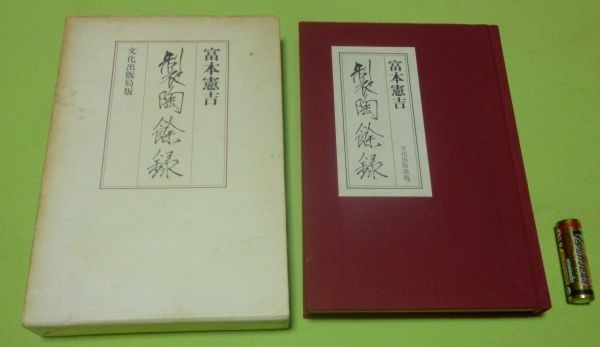 富本憲吉
製陶餘録
文化出版局版
富本憲吉
製陶餘録
文化出版局版